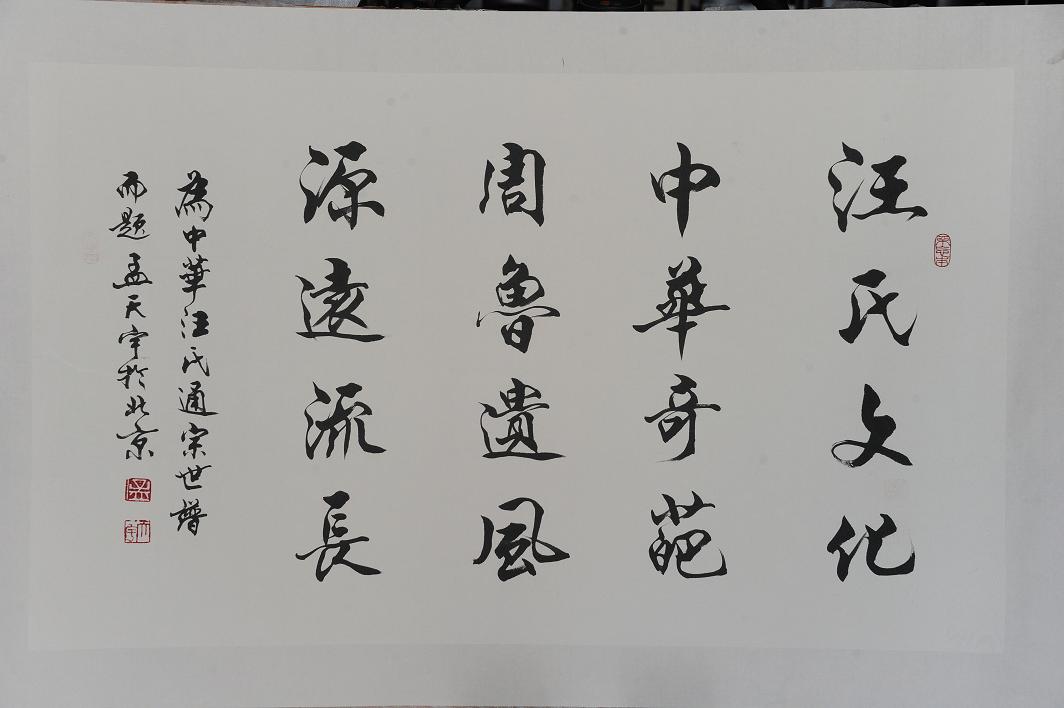 汪氏文化
中華奇葩
周魯遺風
源遠流長
為中華汪氏通宗世譜
而題孟天宇於北京